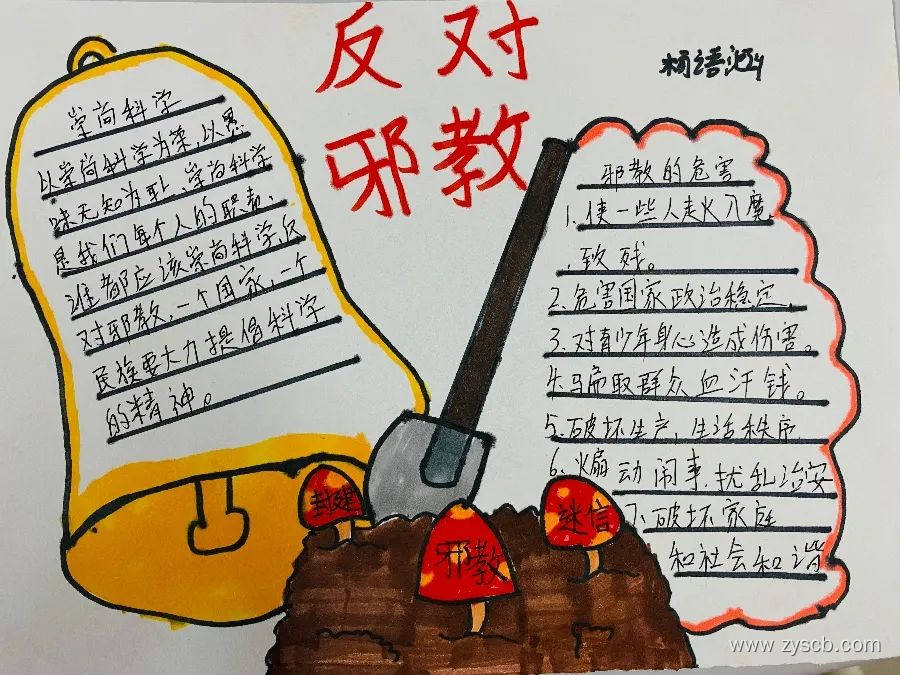 反对
邪教
崇尚科学
以崇尚科学为荣,以愚
昧无知为耻、崇尚科学
是我们每个人的职责、
谁都应该崇尚科学,反
对邪教,一个国家,一个
民族要大力提倡科学
的精神。
邪教的危害
1、使一些人走火入魔
、致残。
2、危害国家政治稳定、
3、对青少年身心造成伤害。
4、骗取群众血汗钱。
5、破坏生产,生活秩序
6、煽动闹事、扰乱治安
7、破坏家庭
和社会和谐
封建
邪教
迷信
www.zyscb.com